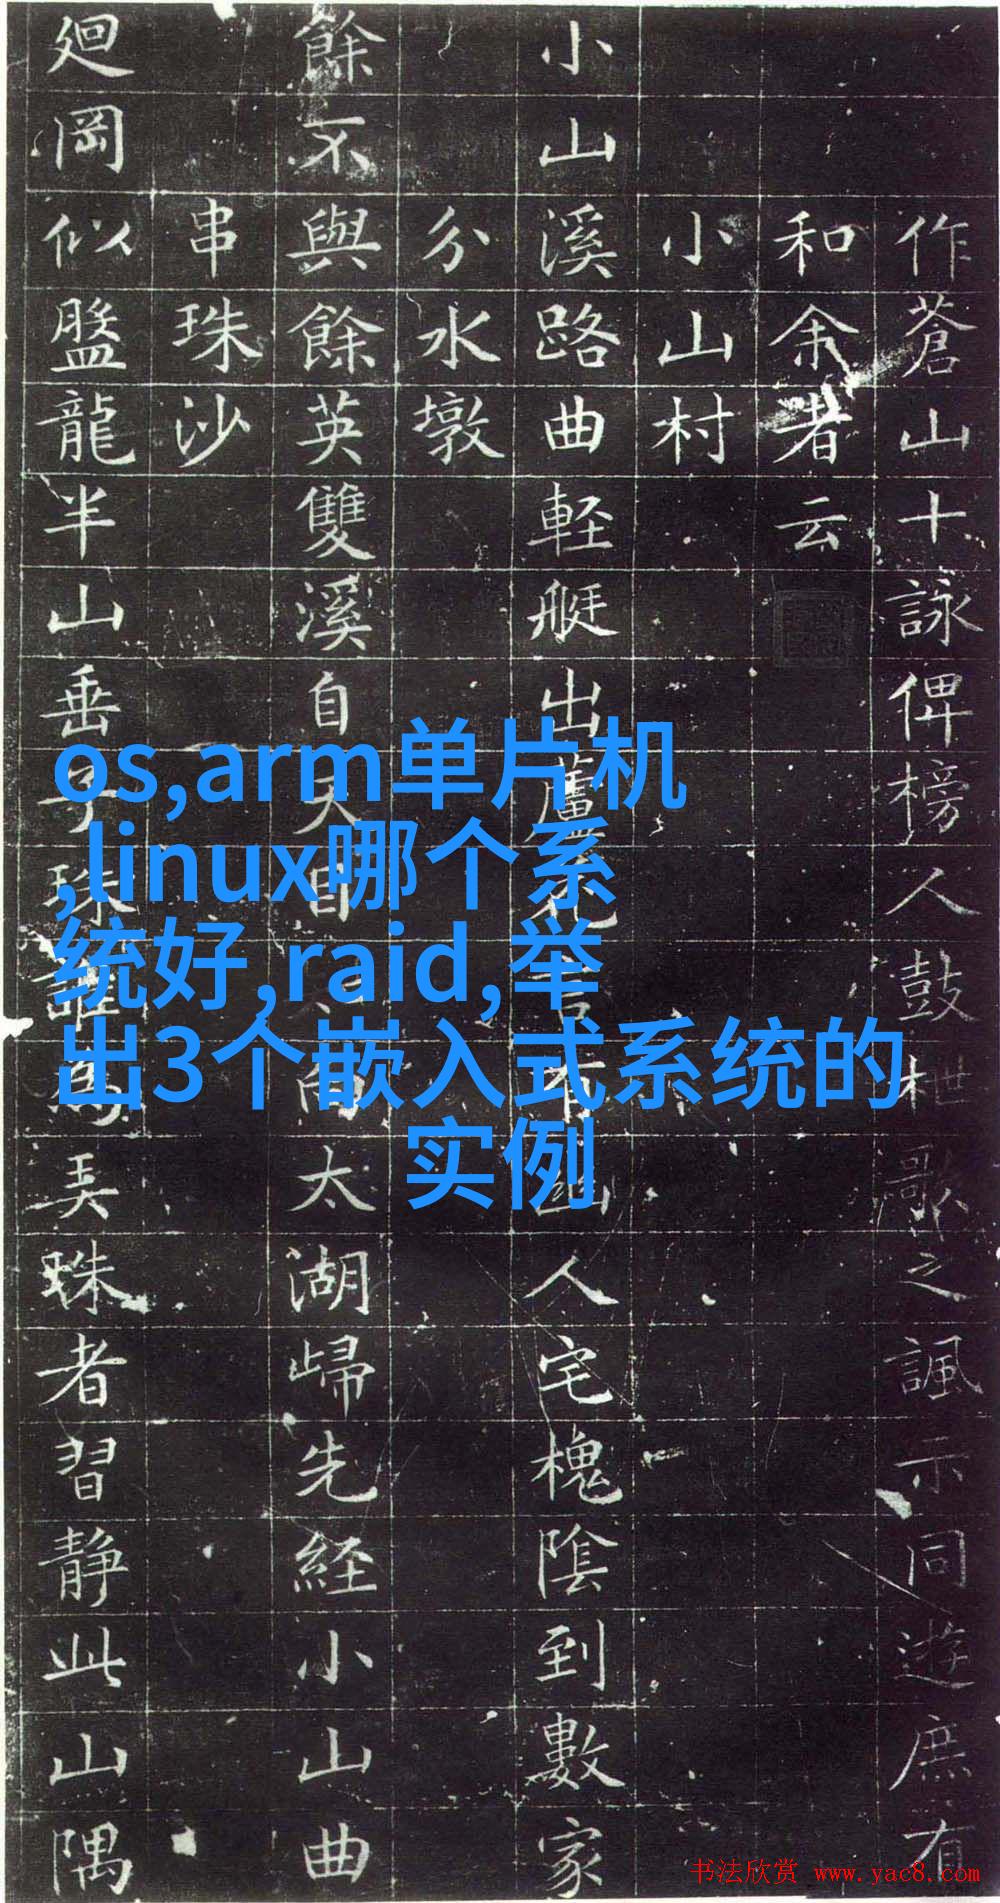 作蒼山十詠俾榜人鼓枻歌之諷示同遊庶有
和余者云
小山村
小山溪路曲軽艇出蘆花言有幽人宅槐陰到數家
分水墩
餘不與餘英雙溪自天目太湖歸先経小山曲
串珠沙
廻岡似盤龍半山垂子珠誰為弄珠者習静此山隅
os,arm单片机
,linux哪个系
统好,raid,举
出3个嵌入式系统的
实例
书法欣赏 www.yac8.com